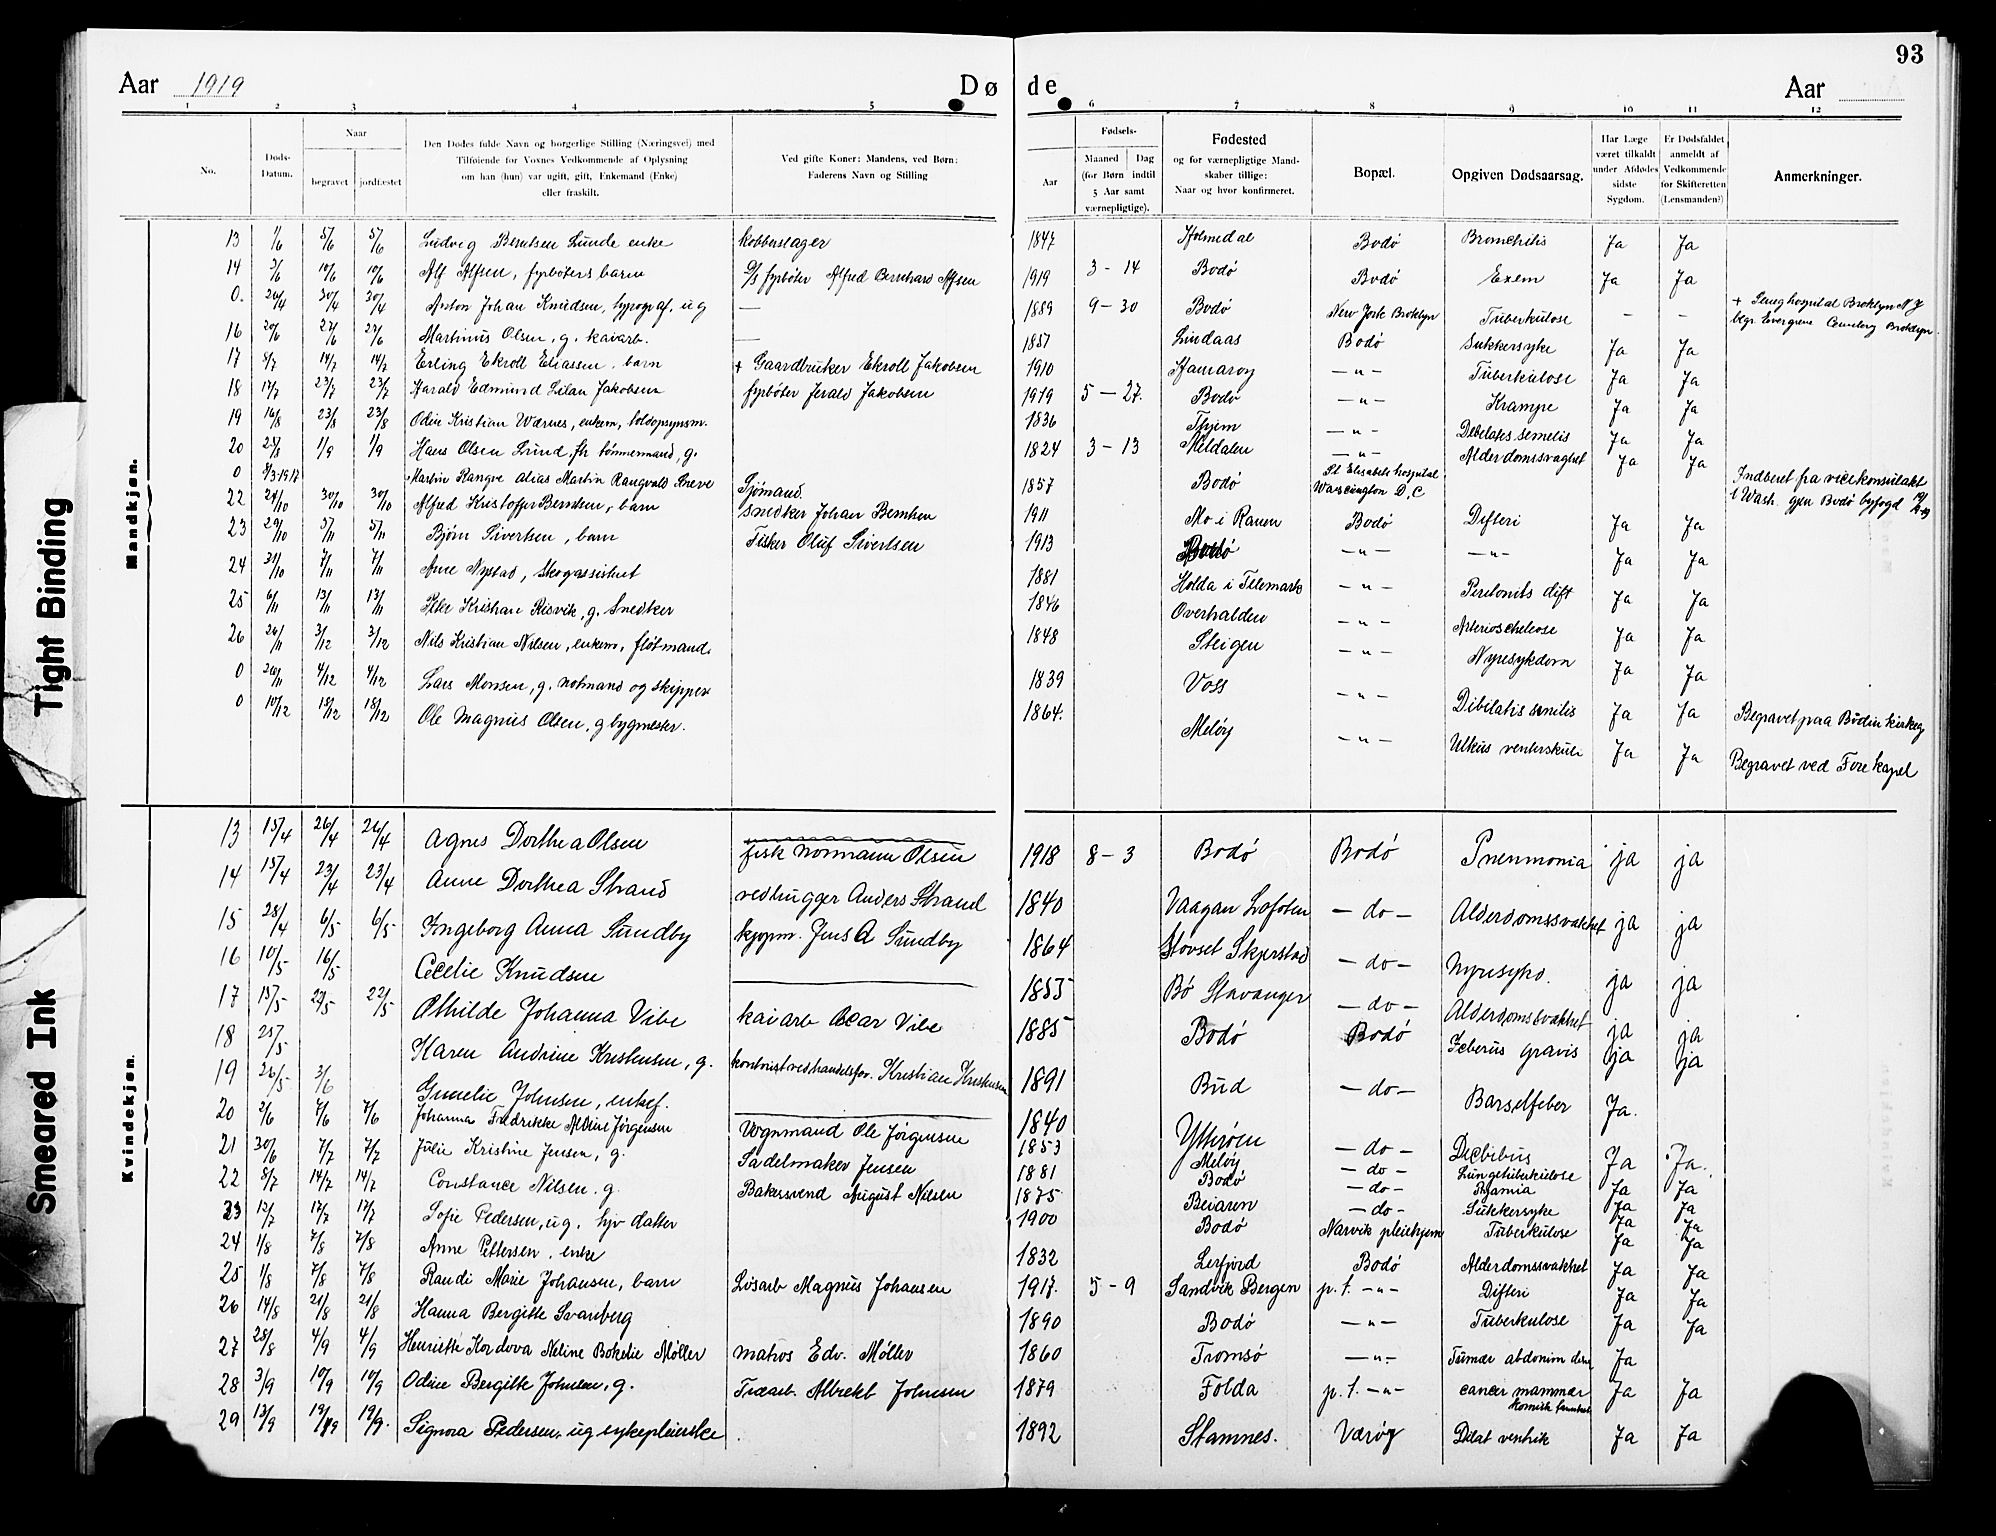 93
Aar 1919 Dø de Aar
1 2 3 4 5 6 7 8 9 10 11 12
No.
Døds-Datum.
Naar
begravet jordfæstet
Den Dødes fulde Navn og borgerlige Stilling (Næringsvei) med
Tilføiende for Voxnes Vedkommende af Oplysning
om han (hun) var ugift, gift, Enkemand (Enke)
eller fraskilt.
Ved gifte Koner: Mandens, ved Børn:
Faderens Navn og Stilling
Fødsels-
Aar
Maaned Dag
(for Børn indtil
5 Aar samt
værnepligtige).
Fødested
og for værnepligtige Mand-
skaber tillige:
Naar og hvor konfirmeret.
Bopæl.
Opgiven Dødsaarsag.
Har Læge
været tilkaldt
under Afdødes
sidste
Sygdom.
Er Dødsfaldet
anmeldt af
Vedkommende
for Skifteretten
(Lensmanden?)
Anmerkninger.
Mandkjøn.
13 1/6 5/6 5/6 Ludvig Berntsen Lunde enke kobberslager 1847 Holmedal Bodö Bronchitis Ja Ja
14 3/6 10/6 10/6 Alf Alfsen, fyrböters barn fyrböter Alfred Bernhard Alfsen 1919 3-14 Bodö Bodö Exem Ja Ja
0. 26/4 30/4 30/4 Anton Johan Knudsen, typograf, ug — 1889 9-30 Bodö New Jork Broklyn Tuberkulose - - hospital Broklyn N J
begr Evergrene Cemetery Broklyn.
16 20/6 27/6 27/6 Martinus Olsen, g. kaiarb. — 1857 Lindaas Bodö Sukkersyke Ja Ja
17 8/7 14/7 14/7 Erling Ekroll Eliassen, barn + Gaardbruker Ekroll Jakobsen 1910 Hamaroy -"- Tuberkulose Ja Ja
18 17/7 23/7 23/7 Harald Edmund Jakobsen fyrböter Jerald Jakobsen 1919 5-27. Bodö -"- Krampe Ja Ja
19 16/8 23/8 23/8 Odin Kristian Wærnes, enkem, toldopsynsm. 1836 -"- Debilatis semelis Ja Ja
20 25/8 1/9 1/9 Hans Olsen Lund, fh tömmermand, g. 1824 3-13 Meldalen -"- Alderdomssvaghet Ja Ja
0 8/3-1917 Martin Rangve alias Martin Rangvald Sneve Sjömand. 1857 Bodö St Elisabets hospital
Wascington D.C Indberet fra vicekonsulatet
i Wash. gjen Bodö byfogd
22 24/10 30/10 30/10 Alfred Kristoffer Berntsen, barn Snedker Johan Berntsen 1911 Mo i Ranen Bodö Difteri Ja Ja
23 29/10 5/11 5/11 Björn Sivertsen, barn Fisker Oluf Sivertsen 1913 Bodö -"- -"- Ja Ja
24 31/10 7/11 7/11 Arne Nystad, Skogassistent 1881 Holda i Telemark -"- Peritonits dift Ja Ja
25 6/11 13/11 13/11 Peter Kristian Risvik, g. Snedker 1846 Overhalden -"- Arterioscheleose Ja Ja
26 26/11 3/12 3/12 Nils Kristian Nilsen, enkem, flötmand. 1848 Steigen -"- Nyresykdom Ja Ja
0 26/11 4/12 4/12 Lars Monsen, g. notmand og skipper 1839 Voss -"- Dibilatis senilis Ja Ja Begravet paa Bodin kirkeg
0 10/12 18/12 18/12 Ole Magnus Olsen, g bygmester. 1864. Melöy -"- Ulkus venterskule Ja Ja Begravet ved Fore kapel
Kvindekjøn.
13 15/4 26/4 26/4 Agnes Dorthea Olsen fisk Normann Olsen 1918 8-3 Bodö Bodö Pneumonia ja ja
14 15/4 23/4 23/4 Anne Dorthea Strand vedhugger Anders Strand 1840 Vaagan Lofoten -do- Alderdomssvakhet ja ja
15 28/4 6/5 6/5 Ingeborg Anna Sundby kjøpm. Jens A Sundby 1864 Stovset Skjerstad -do- Nyresyke. ja ja
16 10/5 16/5 Cecelie Knudsen — 1853 Bö Stavanger -do- Alderdomssvakhet ja ja
17 15/5 22/5 22/5 Othilde Johanna Vibe kaiarb Oscar Vibe 1885 Bodö Bodö Icterus gravis ja ja
18 25/5 Karen Andrine Kristensen, g. kontorist ved handelsfor. Kristian Kristensen 1891 Bud -do- Barselfeber Ja.
19 26/5 3/6 Gunelie Johnsen, enkef. — 1840 Ytterøen -do- Diæbibus Ja Ja.
20 2/6 7/6 7/6 Johanna Fredrikke Aldine Jörgensen Vognmand Ole Jörgensen 1853 Melöy -do- Lungetuberkulose Ja Ja
21 30/6 7/7 7/7 Julie Kristine Jensen, g. Sadelmaker Jensen 1881 Bodö -do- Ja Ja
22 8/7 14/7 14/7 Constance Nilsen. g. Bakersvend August Nilsen 1875 Beiaren -do- Sukkersyke Ja Ja
23 12/7 17/7 17/7 Sofie Pedersen, ug. hjv datter 1900 Bodö Narvik pleiehjem Tuberkulose Ja Ja
24 1/8 7/8 7/8 Anne Pettersen, enke 1832 Leirfjord Bodö Alderdomssvakhet Ja Ja
25 1/8 7/8 7/8 Randi Marie Johansen, barn Lösarb Magnus Johansen 1917. 5-9 Sandvik Bergen p.t. -"- Difteri Ja Ja
26 14/8 21/8 21/8 Hanna Bergitte Svanberg 1890 Bodö -"- Tuberkulose Ja Ja
27 28/8 4/9 4/9 Henriette Kordova Neline Bokelie Møller matros Edv. Møller 1860 Tromsö -"- Tumar abdonim Ja
28 3/9 10/9 10/9 Odine Bergitte Johnsen, g. Træarb. Albrekt Johnsen 1879 Folda p.t. -"- cancer mammær Ja Ja
29 13/9 19/9 19/9. Signora Pedersen, ug sykepleierske 1892 Stamnes. Værøy Dilat ventrik Ja Ja
Tight Binding
Smeared Ink